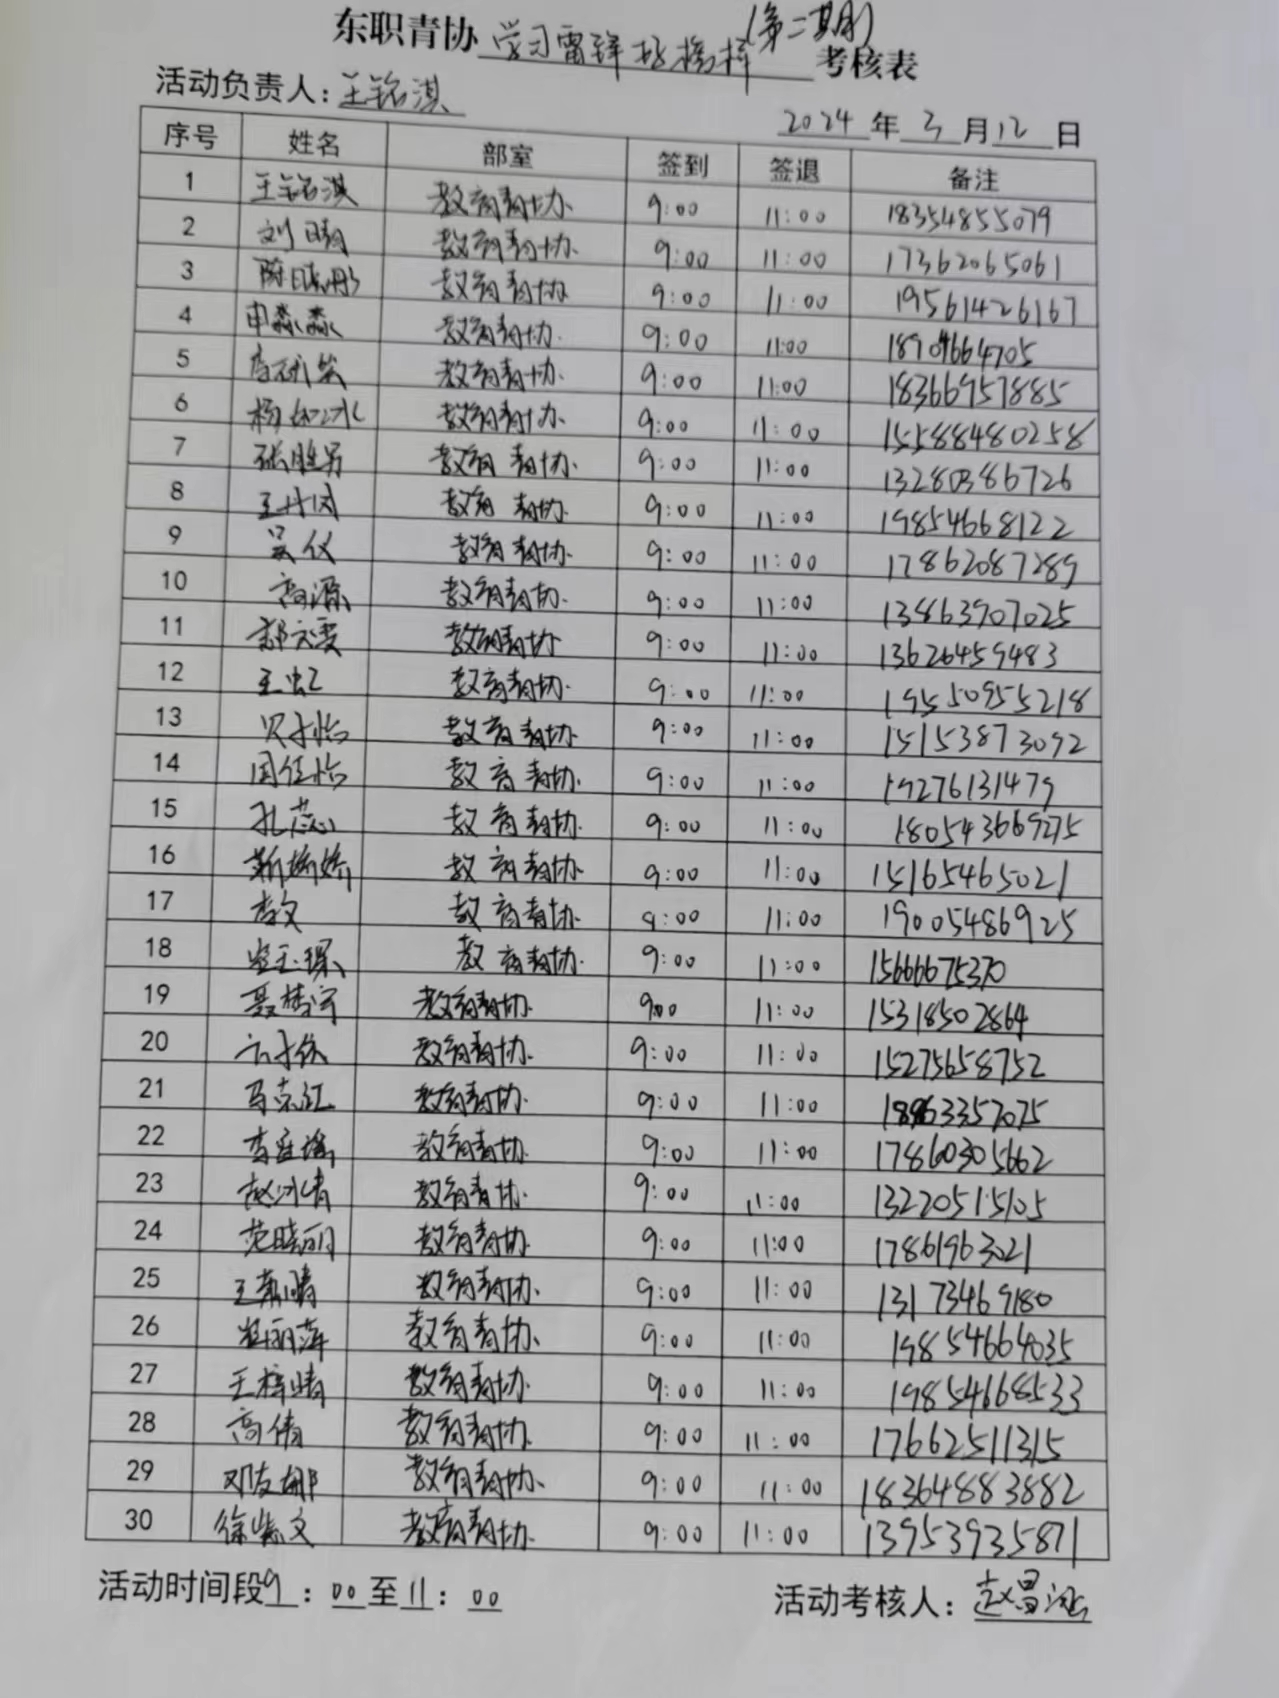 (第二期)
东职青协 学习雷锋好榜样 考核表
活动负责人：王铭淇
2024 年 3 月 12 日
序号 姓名 部室 签到 签退 备注
1 王铭淇 教育青协 9:00 11:00 18354855079
2 刘晴 教育青协 9:00 11:00 17362065061
3 陈晓彤 教育青协 9:00 11:00 19561426167
4 申淼淼 教育青协 9:00 11:00
5 教育青协 9:00 11:00 18366957885
6 杨如冰 教育青协 9:00 11:00 15588480258
7 张胜男 教育青协 9:00 11:00 13280386726
8 王丹凤 教育青协 9:00 11:00 19854668122
9 吴仪 教育青协 9:00 11:00 17862087289
10 高源 教育青协 9:00 11:00 13863907025
11 郝文雯 教育青协 9:00 11:00 13626459483
12 王虹 教育青协 9:00 11:00 19550955218
13 贝子怡 教育青协 9:00 11:00 15153873092
14 周佳怡 教育青协 9:00 11:00 19276131479
15 孔蕊 教育青协 9:00 11:00 180543669275
16 靳娇娇 教育青协 9:00 11:00 15165465021
17 李文 教育青协 9:00 11:00 19005486925
18 教育青协 9:00 11:00 15666675370
19 聂梦宇 教育青协 9:00 11:00 15318502864
20 教育青协 9:00 11:00 15275658752
21 马荣红 教育青协 9:00 11:00
22 教育青协 9:00 11:00 17860305662
23 赵冰倩 教育青协 9:00 11:00 13220515105
24 范晓丽 教育青协 9:00 11:00 17861963021
25 王萧晴 教育青协 9:00 11:00 13173469180
26 教育青协 9:00 11:00 19854664035
27 王梓晴 教育青协 9:00 11:00 19854668533
28 高倩 教育青协 9:00 11:00 17662511315
29 邓友娜 教育青协 9:00 11:00 18364883882
30 徐紫文 教育青协 9:00 11:00 13953935871
活动时间段9：00至11：00 活动考核人：赵昌泓